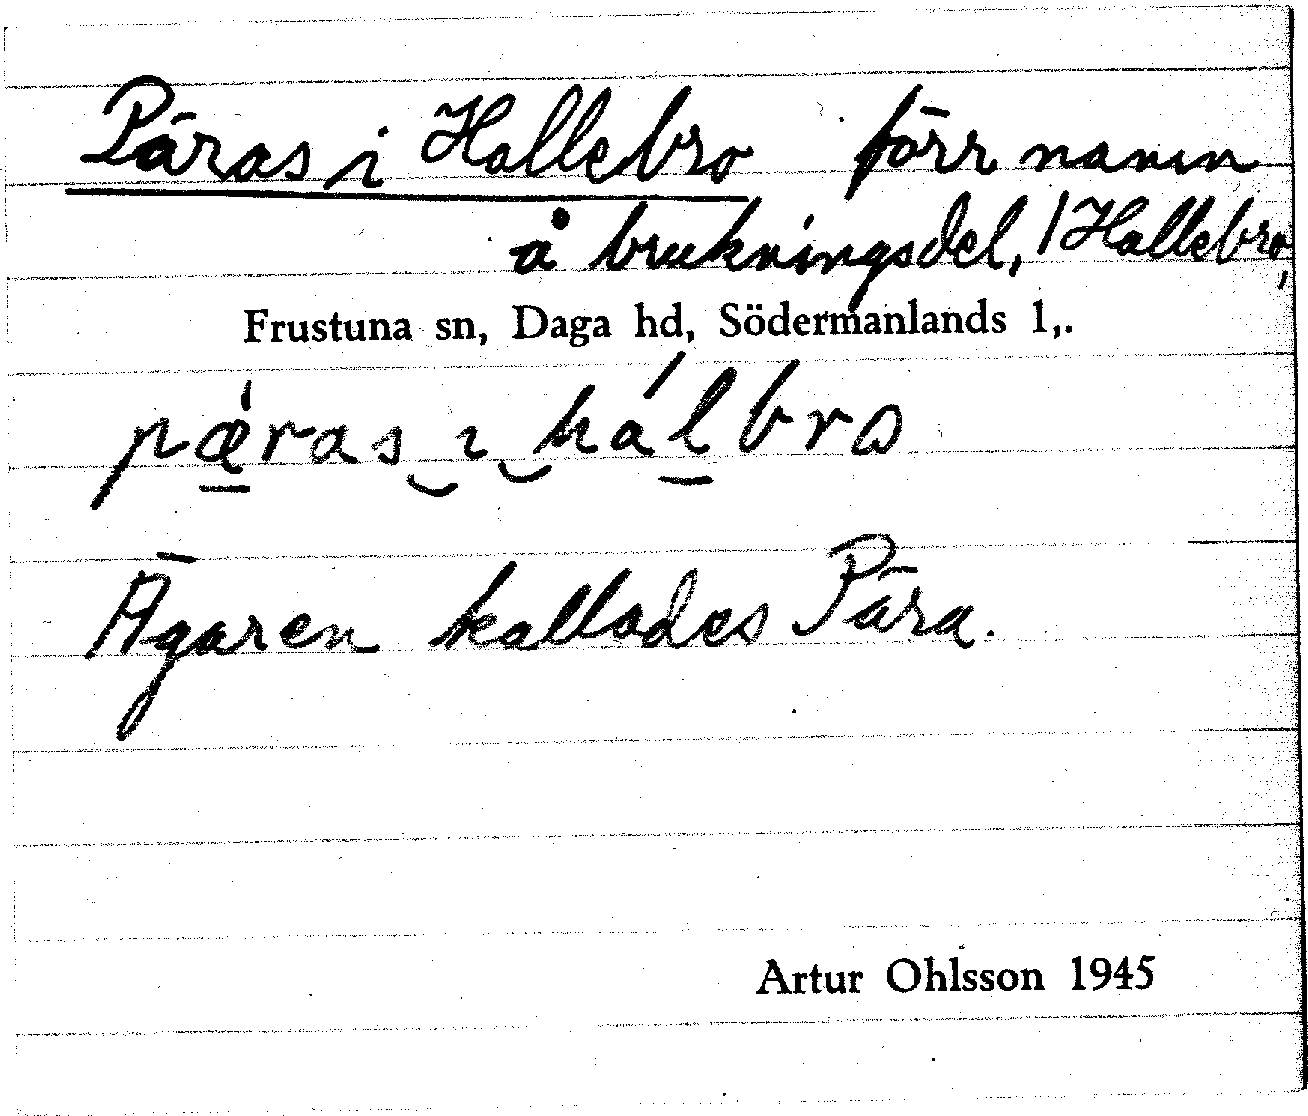 Päras i Hallebro förr namn
å brukningsdel, i Hallebro,
Frustuna sn, Daga hd, Södermanlands l,.
pǽras ı hálbro
Ägaren kallades Pära.
Artur Ohlsson 1945